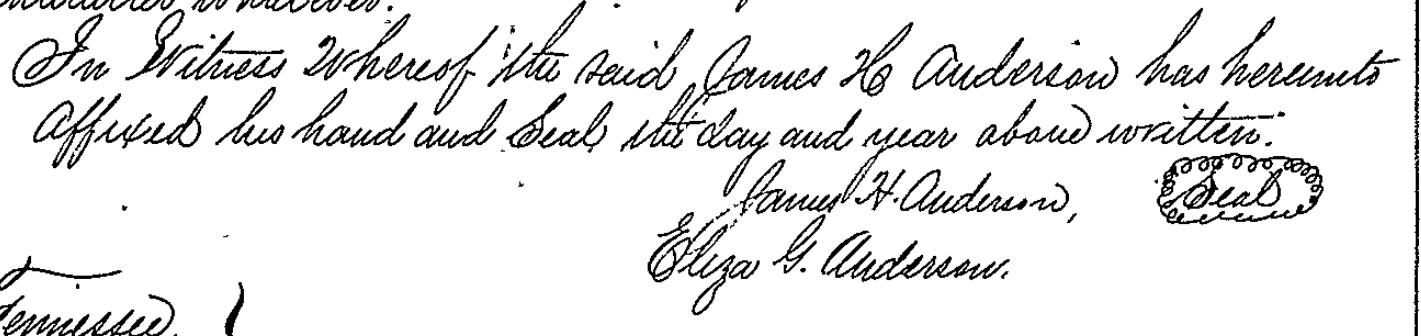 whatsoever.
In Witness Whereof the said James H Anderson has hereunto
affixed his hand and Seal the day and year above written.
James H. Anderson, Seal
Eliza G. Anderson.
Tennessee